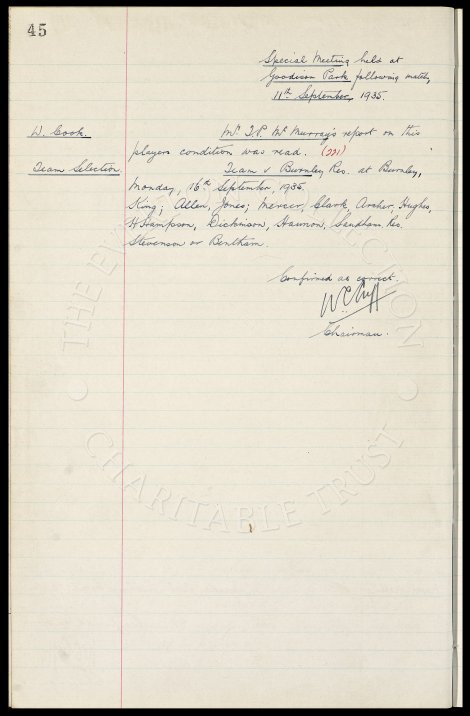 45
Special Meeting held at
Goodison Park following match,
11th September, 1935.
W. Cook. Mr T.P. McMurray's report on this
players condition was read. (221)
Team Selection. Team v Burnley Res. at Burnley,
Monday, 16th September, 1935.
King; Allen, Jones; Mercer, Clark, Archer, Hughes,
H Hampson, Dickinson, Hannon, Sandham Res.
Stevenson or Bentham.
Confirmed as correct.
W.C. Cuff
Chairman.
THE EVERTON COLLECTION
CHARITABLE TRUST